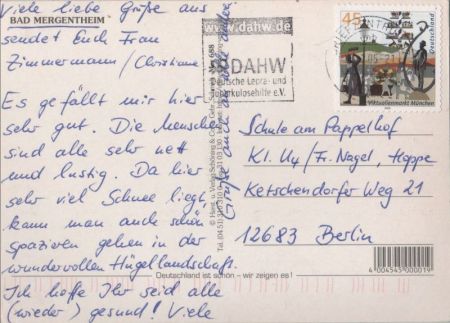 Viele liebe Grüße aus
BAD MERGENTHEIM
sendet Euch Frau
Zimmermann/Christiane
Es gefällt mir hier
sehr gut. Die Menschen
sind alle sehr nett
und lustig. Da hier
sehr viel Schnee liegt,
kann man auch schön
spazieren gehen in der
wundervollen Hügellandschaft.
Ich hoffe Ihr seid alle
(wieder) gesund! Viele
Grüße auch an
www.dahw.de
DAHW
Deutsche Lepra- und
Tuberkulosehilfe e.V.
45
Deutschland
Viktualienmarkt München
Schule am Pappelhof
Kl. U4/Fr. Nagel, Hoppe
Ketschendorfer Weg 21
12683 Berlin
4 004545 000019
Deutschland ist schön – wir zeigen es!